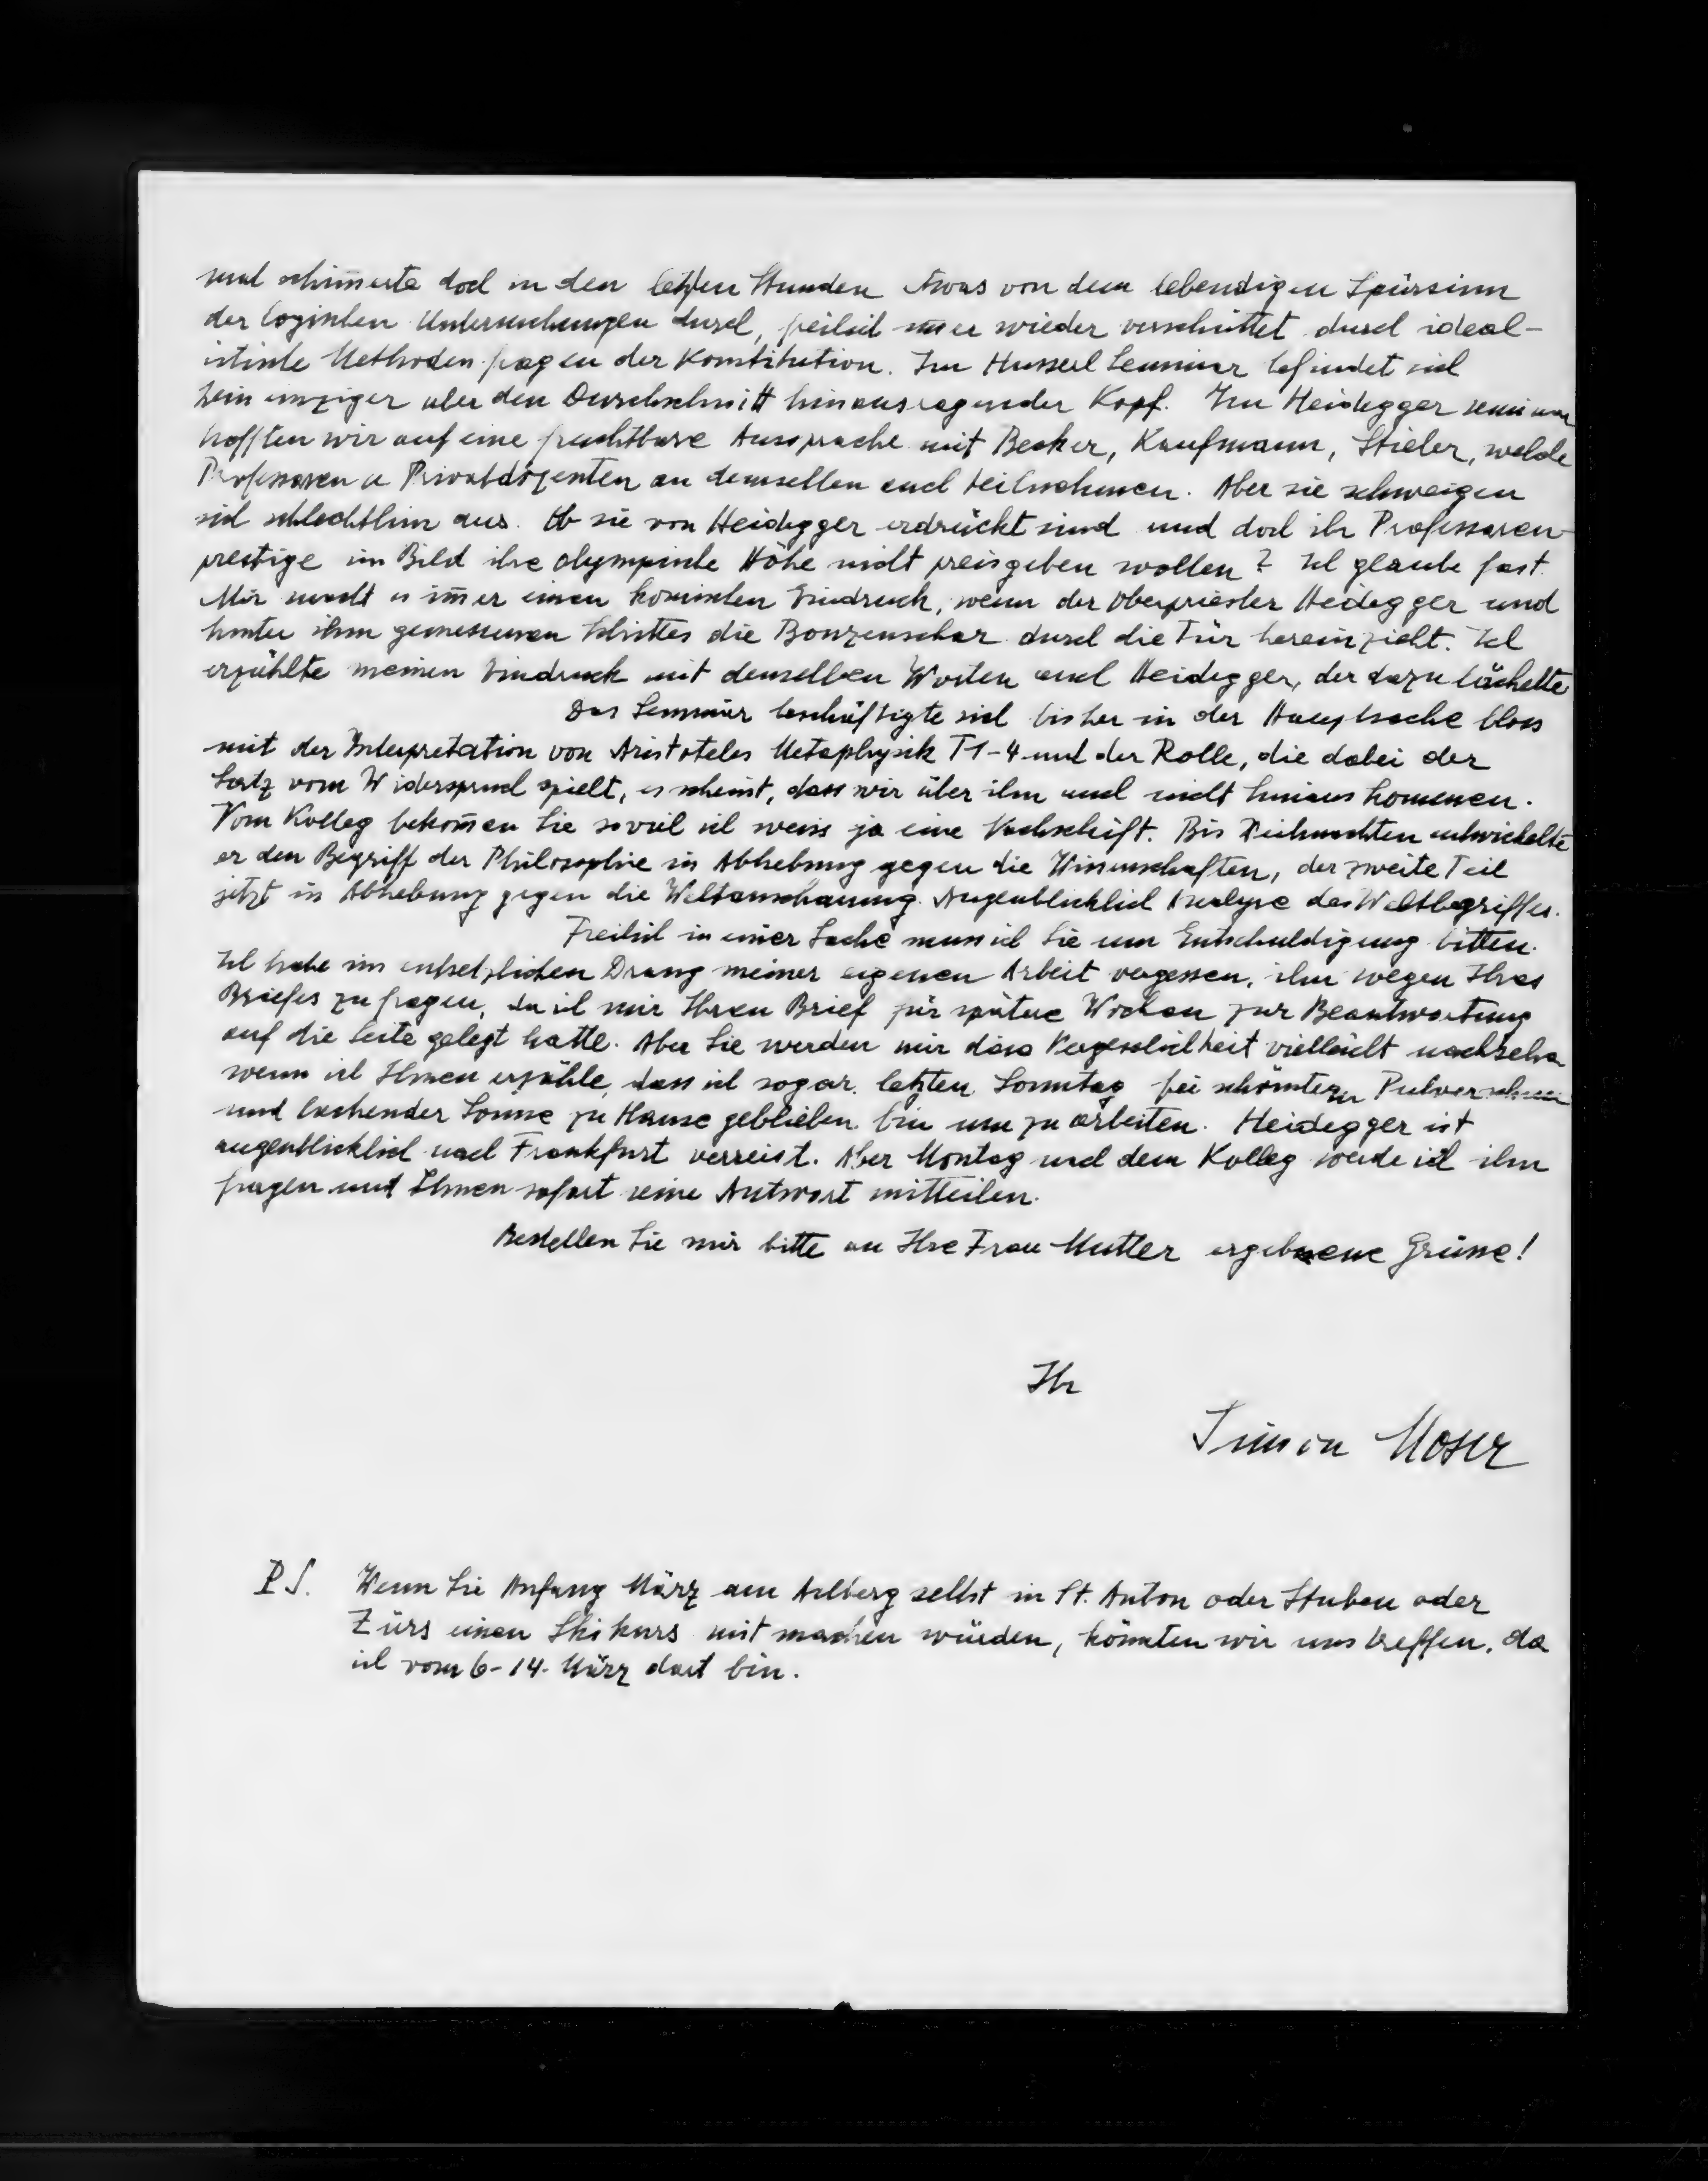 und schim̅erte doch in den letzten Stunden etwas von dem lebendigen Spürsinn
der logischen Untersuchungen durch, freilich im̅er wieder verschüttet durch ideal-
istische Methodenfragen der Konstitution. Im Husserl Seminar befindet sich
kein einziger über den Durchschnitt hinausragender Kopf. Im Heidegger seminar
hofften wir auf eine fruchtbare Aussprache mit Becker, Kaufmann, Stieler, welche
Professoren u Privatdozenten an demselben auch teilnehmen. Aber sie schweigen
sich schlechthin aus. Ob sie von Heidegger erdrückt sind und doch ihr Professoren-
prestige im Bild ihre olympische Höhe nicht preisgeben wollen? Ich glaube fast.
Mir macht es im̅er einen komischen Eindruck, wenn der Oberpriester Heidegger und
hinter ihm gemessenen Schrittes die Bonzenschar durch die Tür hereinzieht. Ich
erzählte meinen Eindruck mit denselben Worten auch Heidegger, der dazu lächelte.
Das Seminar beschäftigte sich bisher in der Hauptsache bloss
mit der Interpretation von Aristoteles Metaphysik Γ1-4 und der Rolle, die dabei der
Satz vom Widerspruch spielt, es scheint, dass wir über ihn auch nicht hinaus kommen.
Vom Kolleg bekom̅en Sie soviel ich weiss ja eine Nachschrift. Bis Weihnachten entwickelte
er den Begriff der Philosophie in Abhebung gegen die Wissenschaften, der zweite Teil
jetzt in Abhebung gegen die Weltanschauung. Augenblicklich Analyse des Weltbegriffes.
Freilich in einer Sache muss ich Sie um Entschuldigung bitten.
Ich habe im entsetzlichen Drang meiner eigenen Arbeit vergessen, ihn wegen Ihres
Briefes zu fragen, da ich mir Ihren Brief für spätere Wochen zur Beantwortung
auf die Seite gelegt hatte. Aber Sie werden mir diese Vergesslichkeit vielleicht nachsehen
wenn ich Ihnen erzähle, dass ich sogar letzten Sonntag bei schönstem Pulverschnee
und lachender Sonne zu Hause geblieben bin um zu arbeiten. Heidegger ist
augenblicklich nach Frankfurt verreist. Aber Montag nach dem Kolleg werde ich ihn
fragen und Ihnen sofort seine Antwort mitteilen.
Bestellen Sie mir bitte an Ihre Frau Mutter ergebene Grüsse!
Ihr
Simon Moser
P.S. Wenn Sie Anfang März am Arlberg selbst in St. Anton oder Stuben oder
Zürs einen Skikurs mit machen würden, könnten wir uns treffen, da
ich vom 6-14. März dort bin.